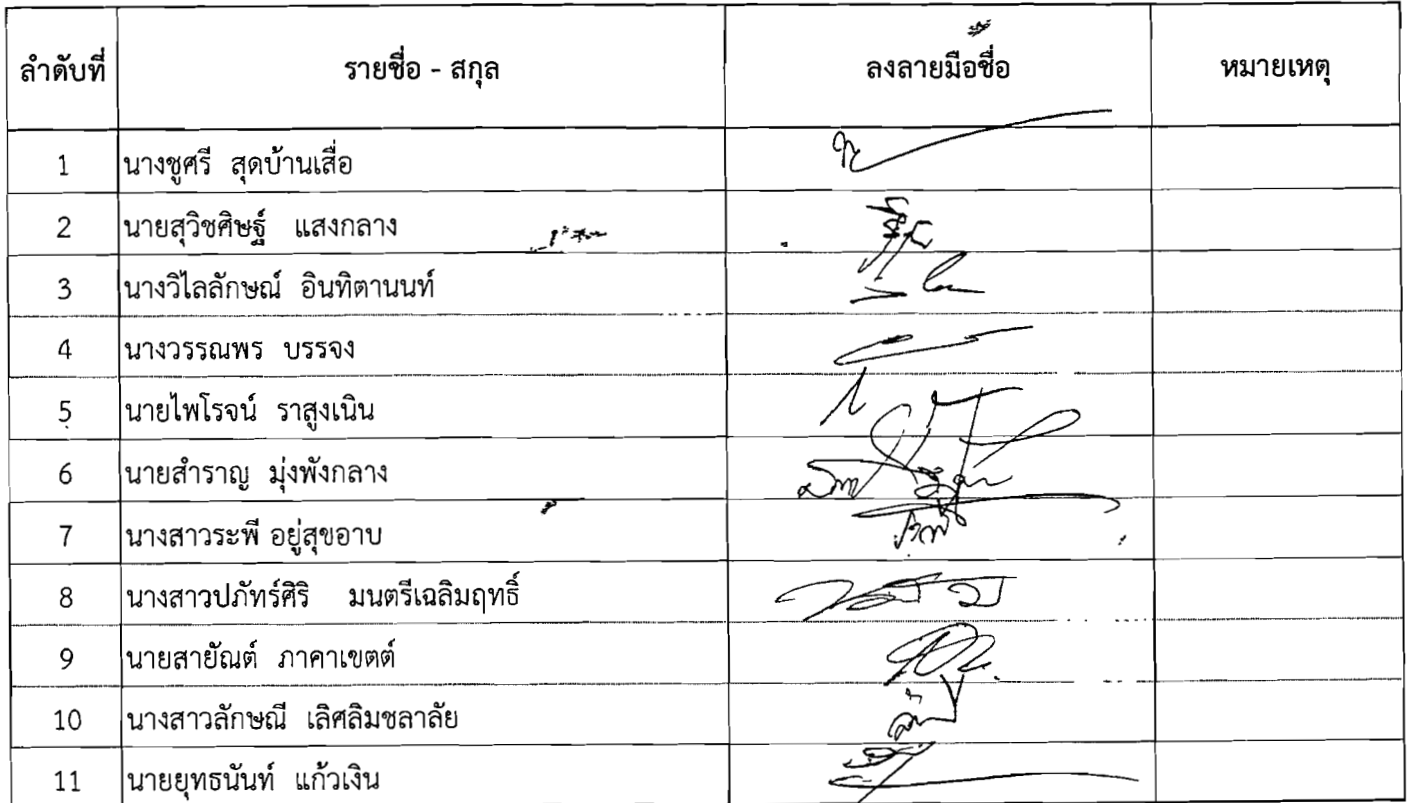 ลำดับที่ รายชื่อ - สกุล ลงลายมือชื่อ หมายเหตุ
1 นางชูศรี สุดบ้านเสื่อ
2 นายสุวิชศิษฐ์ แสงกลาง
3 นางวิไลลักษณ์ อินทิตานนท์
4 นางวรรณพร บรรจง
5 นายไพโรจน์ ราสูงเนิน
6 นายสำราญ มุ่งพังกลาง
7 นางสาวระพี อยู่สุขอาบ
8 นางสาวปภัทร์ศิริ มนตรีเฉลิมฤทธิ์
9 นายสายัณต์ ภาคาเขตต์
10 นางสาวลักษณี เลิศลิมชลาลัย
11 นายยุทธนันท์ แก้วเงิน